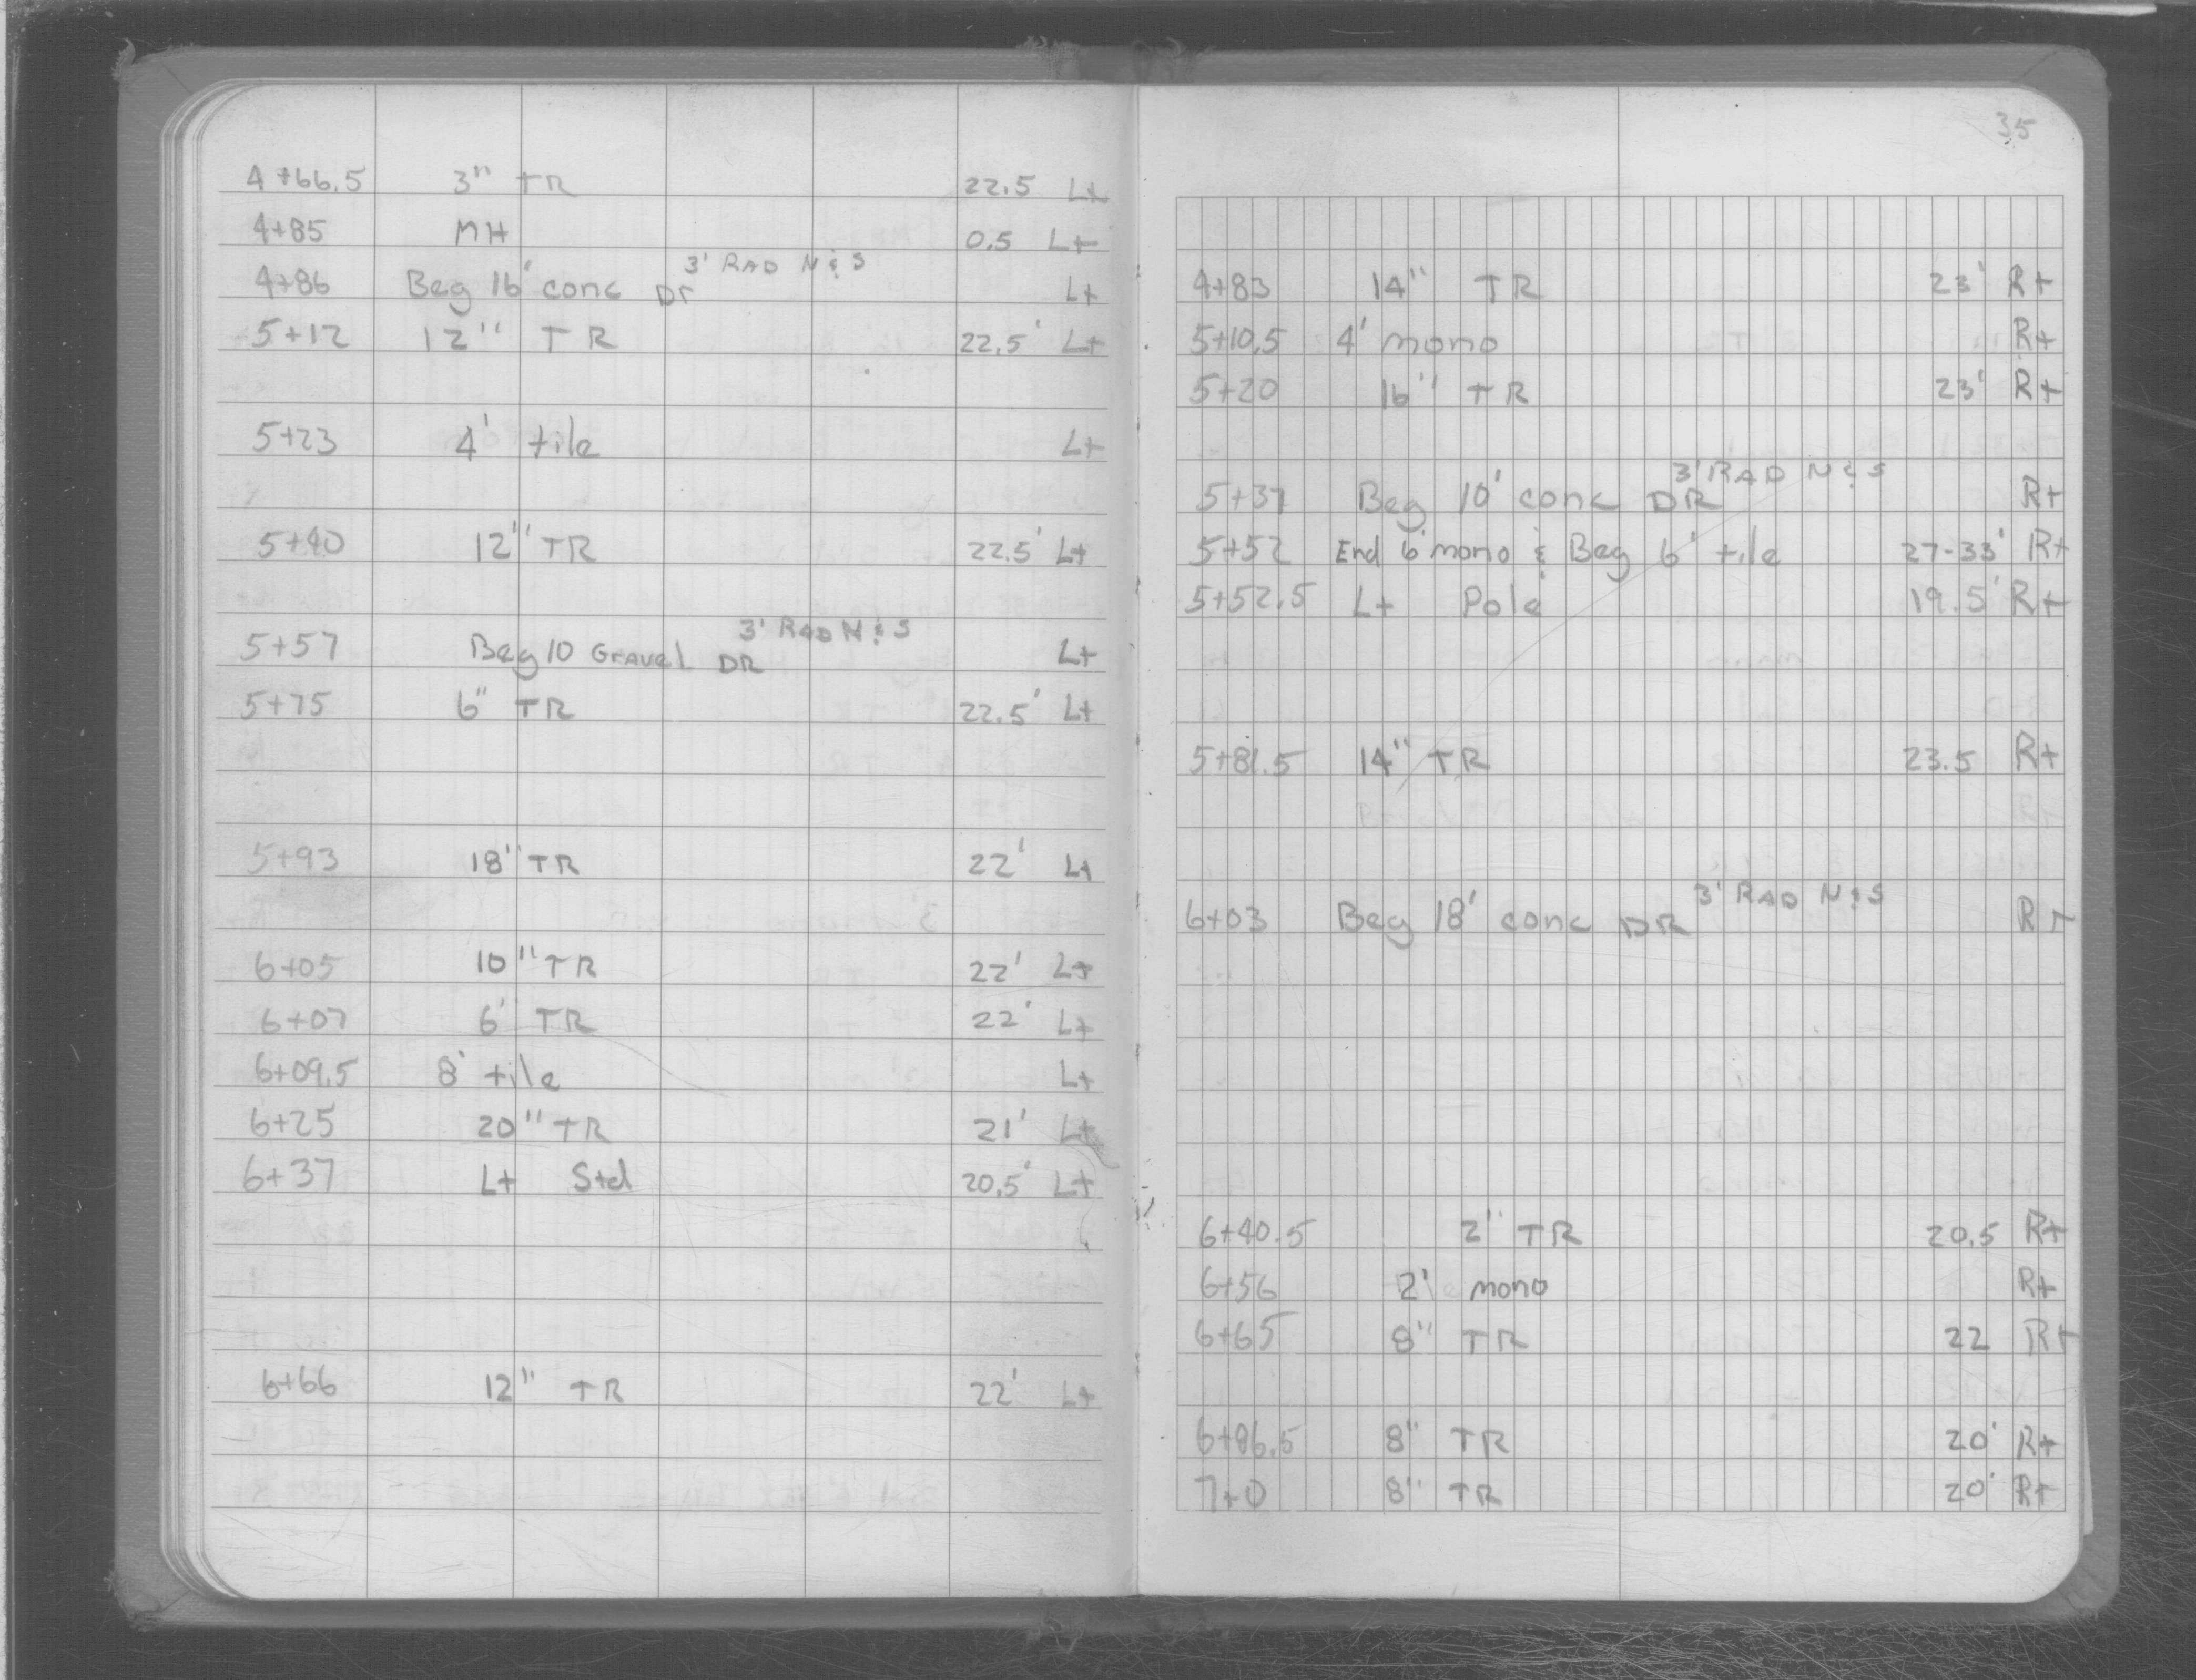 4+66.5 3" TR 22.5 Lt
4+85 MH 0.5 Lt
3' RAD N & S
4+86 Beg 16' conc Dr Lt
5+12 12" TR 22.5' Lt
5+23 4' tile Lt
5+40 12" TR 22.5' Lt
3' RAD N & S
5+57 Beg 10 Gravel DR Lt
5+75 6" TR 22.5' Lt
5+93 18" TR 22' Lt
6+05 10" TR 22' Lt
6+07 6' TR 22' Lt
6+09.5 8' tile Lt
6+25 20" TR 21' Lt
6+37 Lt Std 20.5' Lt
6+66 12" TR 22' Lt
35
4+83 14" TR 23' Rt
5+10.5 4' mono Rt
5+20 16" TR 23' Rt
3' RAD N & S
5+37 Beg 10' conc DR Rt
5+52 End 6' mono & Beg 6' tile 27-33' Rt
5+52.5 Lt Pole 19.5' Rt
5+81.5 14" TR 23.5 Rt
3' RAD N & S
6+03 Beg 18' conc DR Rt
6+40.5 2" TR 20.5 Rt
6+56 2' mono Rt
6+65 8" TR 22 Rt
8" TR 20' Rt
7+0 8" TR 20' Rt